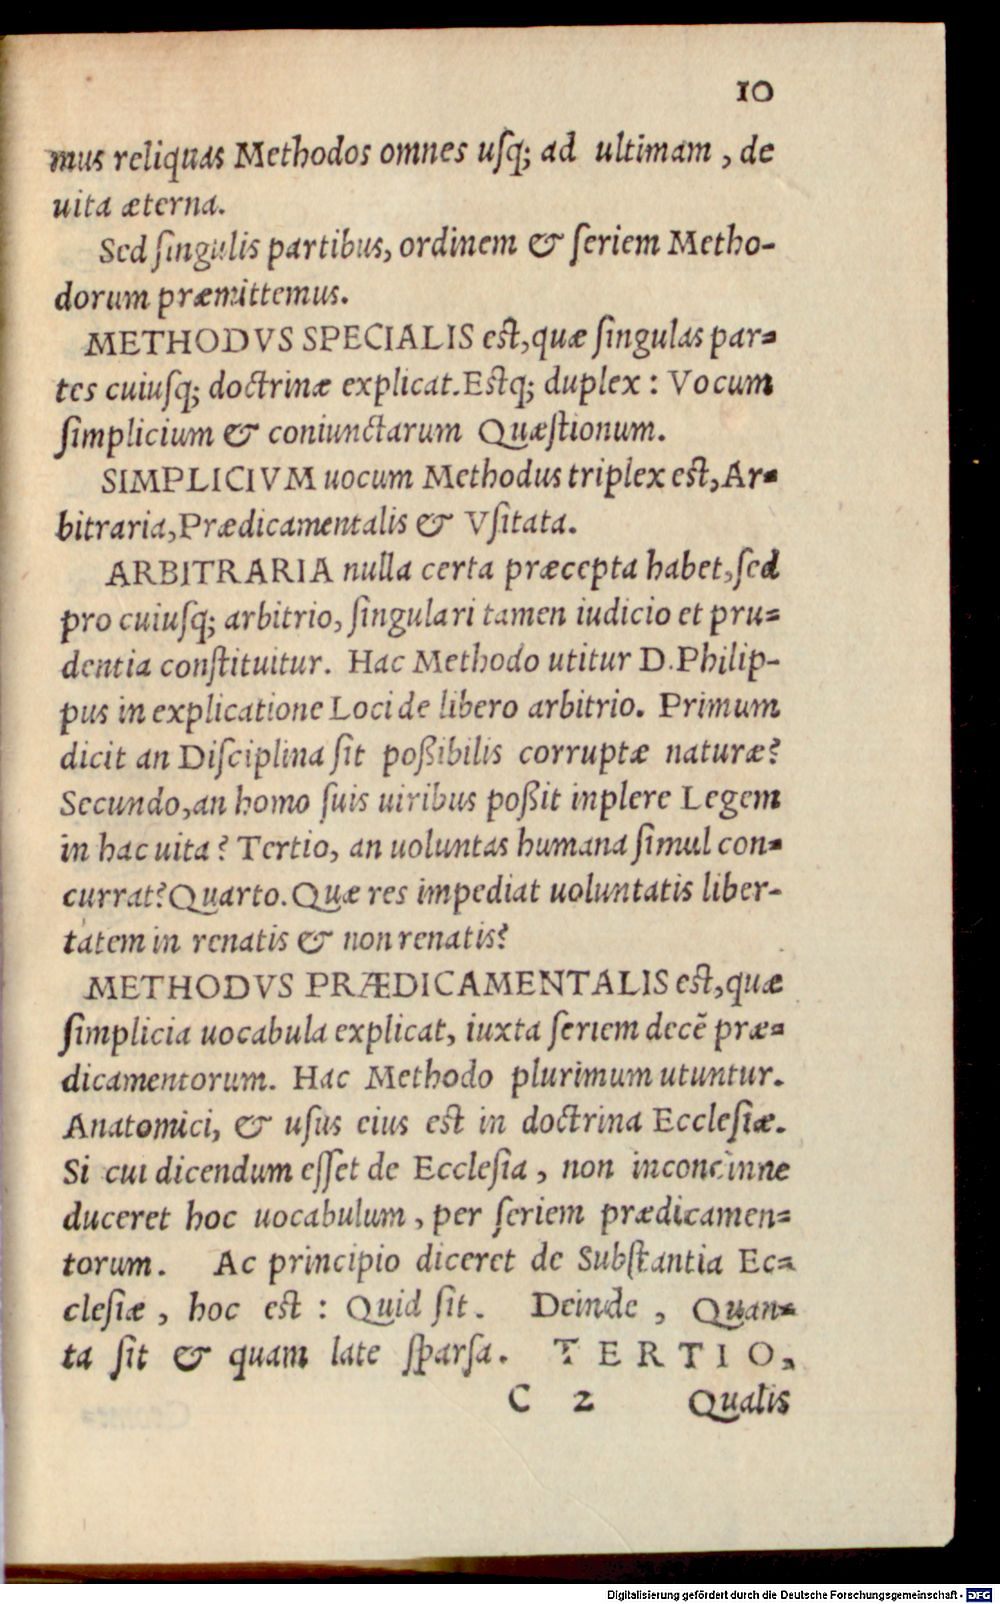 10
mus reliquas Methodos omnes uſq; ad ultimam , de
uita æterna.
Sed ſingulis partibus, ordinem & ſeriem Metho-
dorum præmittemus.
METHODVS SPECIALIS eſt, quæ ſingulas par=
tes cuiuſq; doctrinæ explicat. Eſtq; duplex : Vocum
ſimplicium & coniunctarum Quæſtionum.
SIMPLICIVM uocum Methodus triplex eſt, Ar=
bitraria, Prædicamentalis & Vſitata.
ARBITRARIA nulla certa præcepta habet, ſed
pro cuiuſq; arbitrio, ſingulari tamen iudicio et pru=
dentia conſtituitur. Hac Methodo utitur D. Philip-
pus in explicatione Loci de libero arbitrio. Primum
dicit an Diſciplina ſit poßibilis corruptæ naturæ?
Secundo, an homo ſuis uiribus poßit inplere Legem
in hac uita? Tertio, an uoluntas humana ſimul con=
currat? Quarto. Quæ res impediat uoluntatis liber-
tatem in renatis & non renatis?
METHODVS PRÆDICAMENTALIS eſt, quæ
ſimplicia uocabula explicat, iuxta ſeriem decē præ=
dicamentorum. Hac Methodo plurimum utuntur.
Anatomici, & uſus eius eſt in doctrina Eccleſiæ.
Si cui dicendum eſſet de Eccleſia , non inconcinne
duceret hoc uocabulum , per ſeriem prædicamen=
torum. Ac principio diceret de Subſtantia Ec=
cleſiæ , hoc eſt : Quid ſit. Deinde , Quan=
ta ſit & quam late ſparſa. TERTIO,
C 2 Qualis
Digitalisierung gefördert durch die Deutsche Forschungsgemeinschaft - DFG